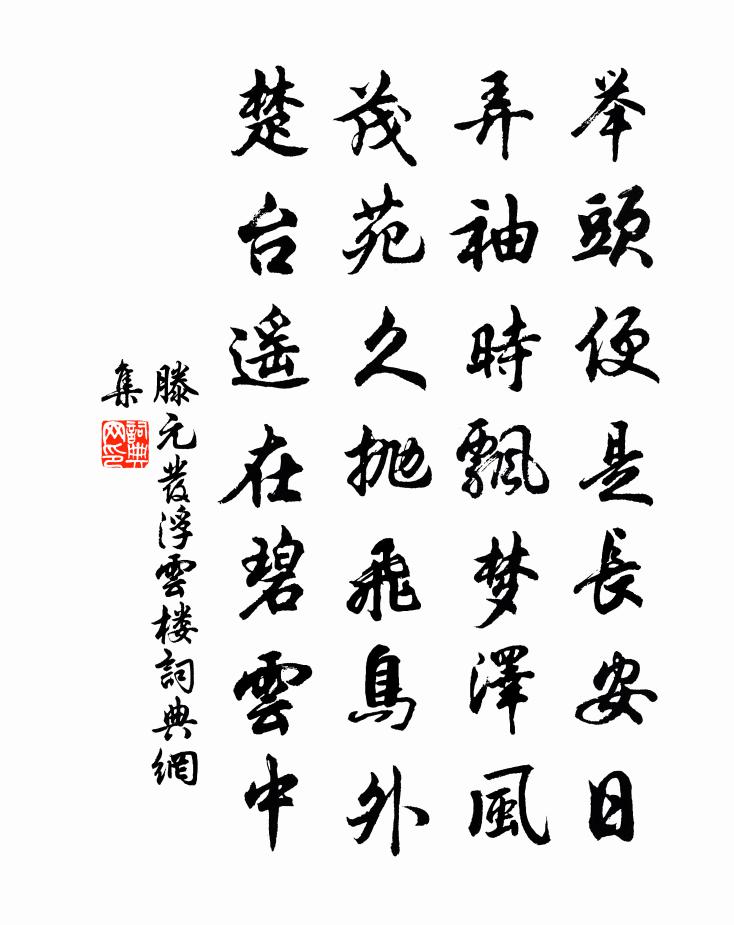 举頭便是長安日
弄袖時飄梦澤風
茂苑久抛飛鳥外
楚台遥在碧雲中
滕元發浮雲楼詞典網
集
詞典
网印